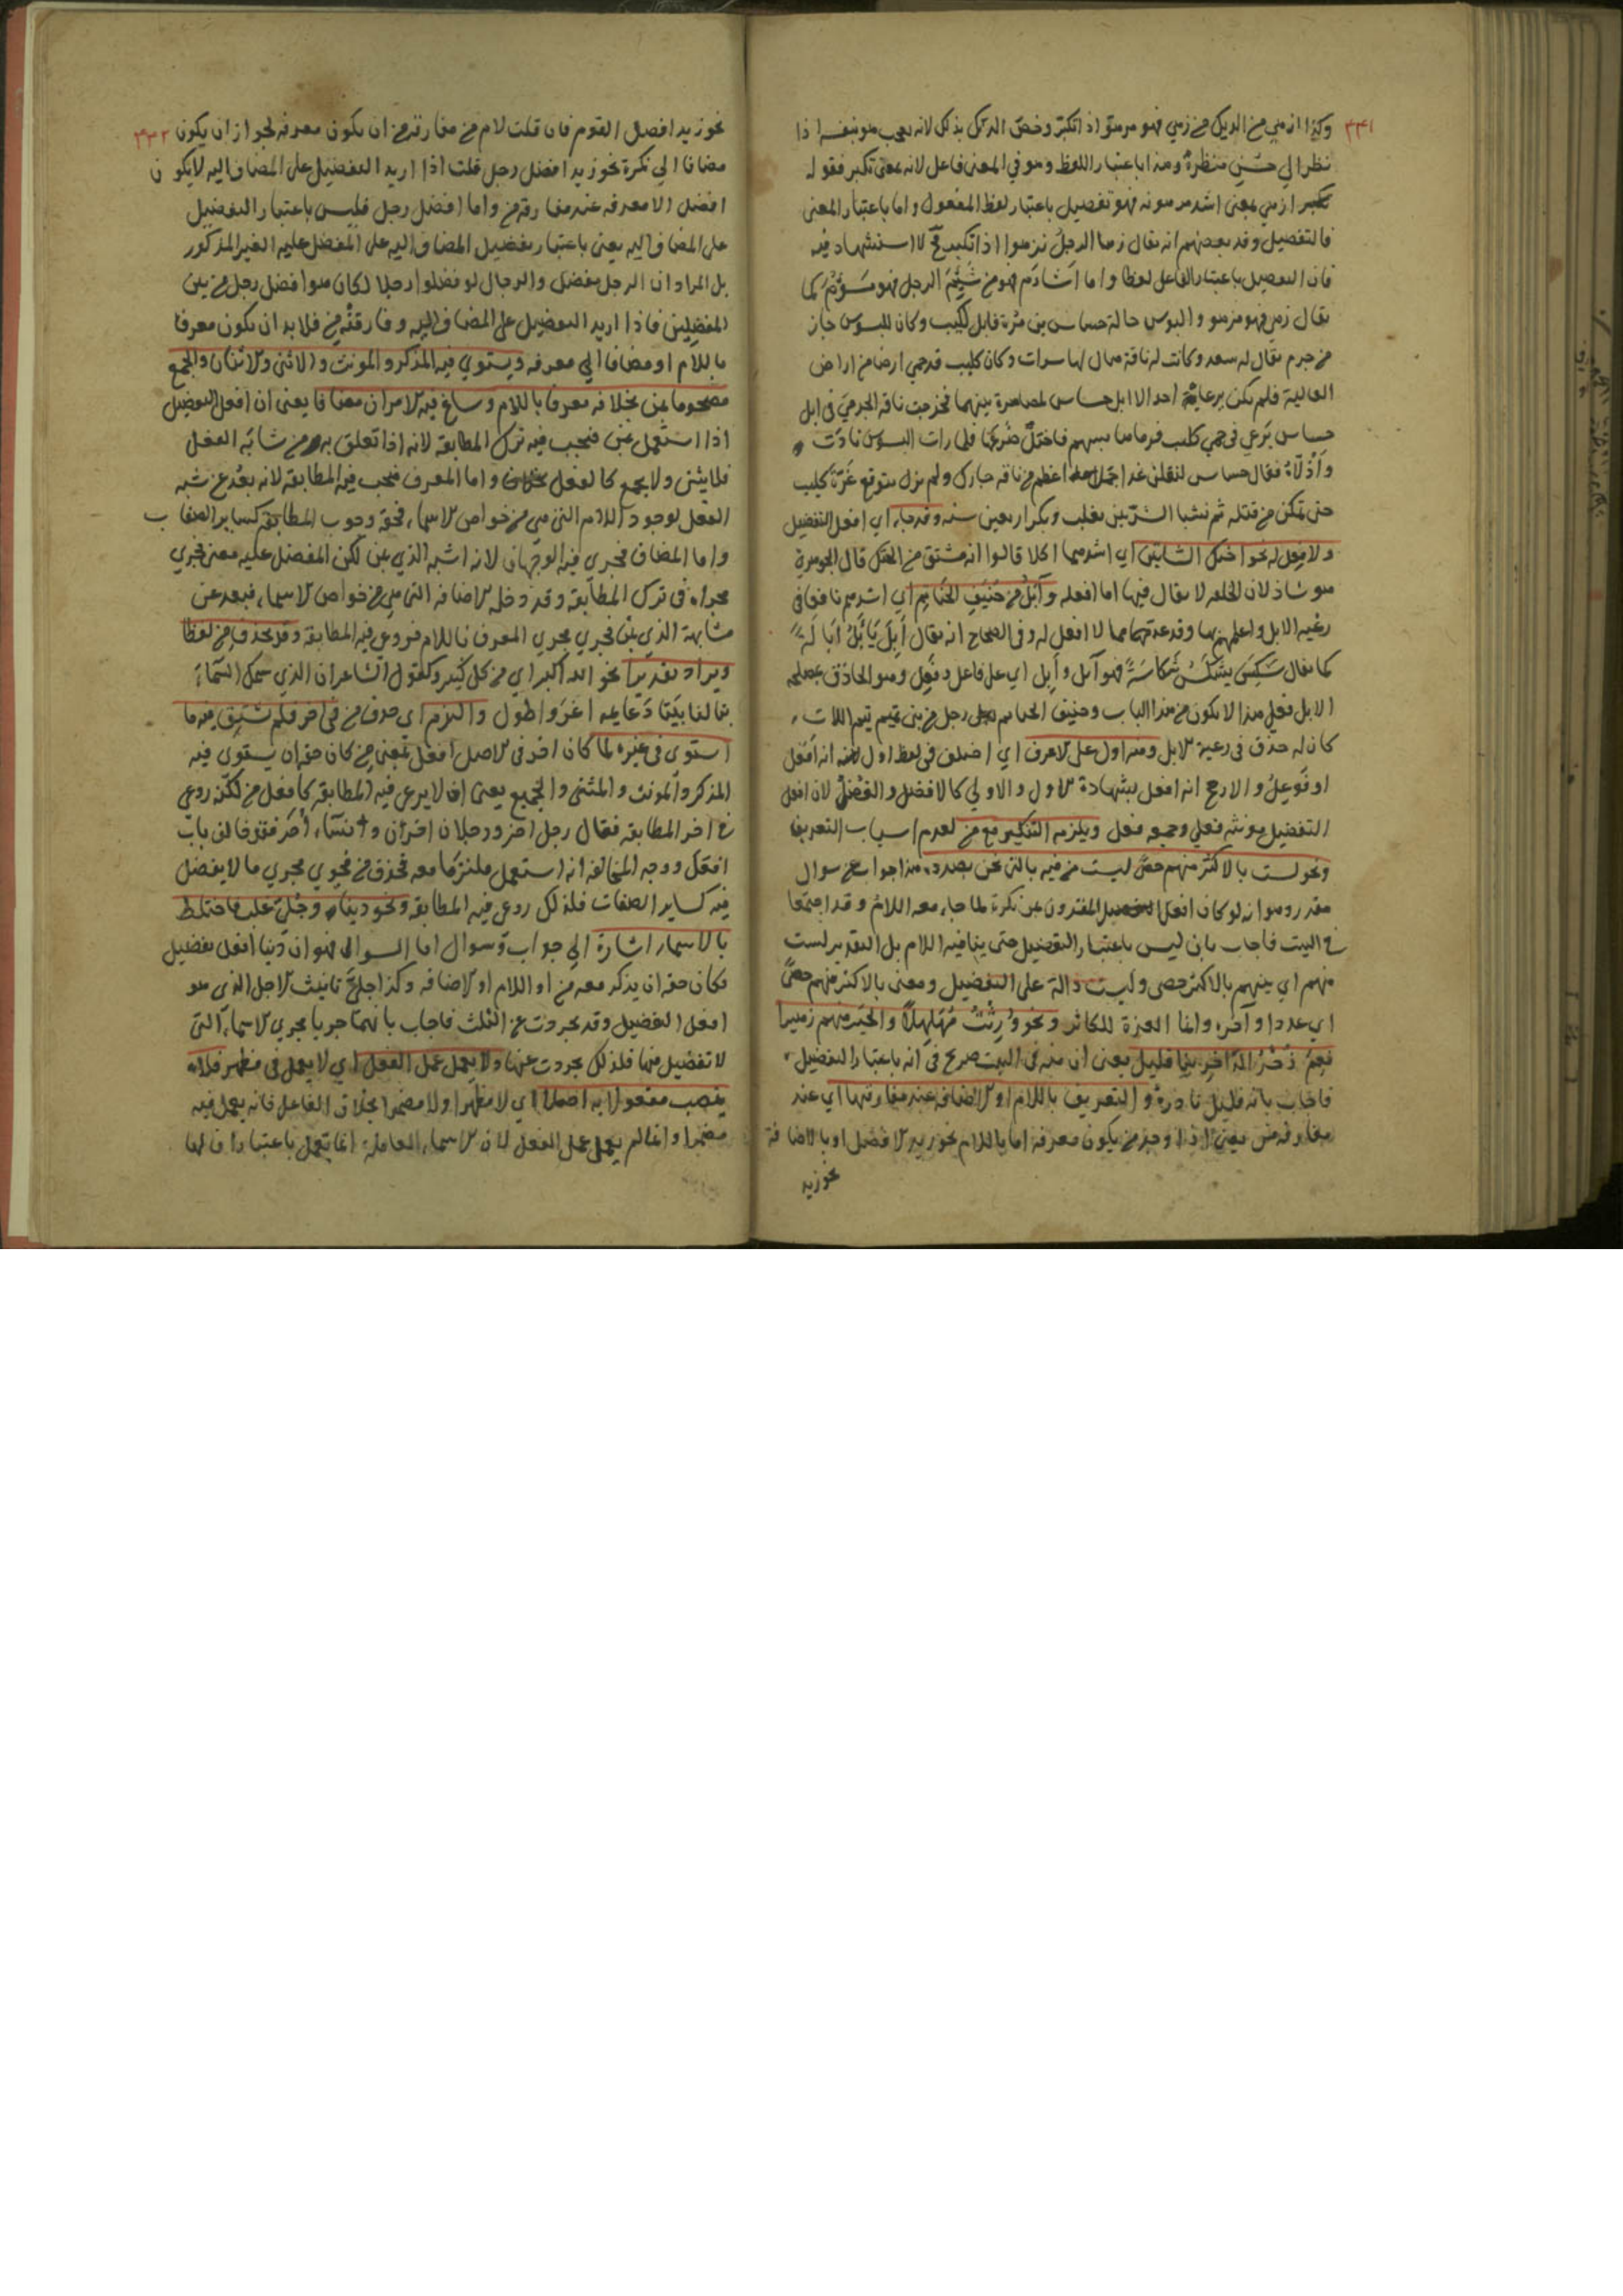 ٣٣١
وكذا ازهي من الديك من زهي فهو مزهو اذا تكبر وخص الديك بذلك لانه يعجب هو بنفسه اذا
نظر الي حسن منظره وهذا باعتبار اللفظ وهو في المعني فاعل لانه بمعني تكبر فقولـ
تكبر ازهي بمعني اشد فهو تفضيل باعتبار لفظ المفعول واما باعتبار المعني
فالتفضيل وقد بعضهم انه يقال زها الرجل يزهوا اذا تكبر فح لا استشهاد فيه
فان التفضيل باعتبار الفاعل لفظا واما اشام فهو من شئم الرجل فهو مشؤم كما
يقال زهي فهو مزهو والبسوس خالة جساس بن مرة قاتل كليب وكان للبسوس جار
من جرم يقال له سعد وكانت له ناقة يقال لها سراب وكان كليب قد حمي ارضا من اراض
العالية فلم يكن يرعاه احد الا ابل جساس لمصاهرة بينهما فخرجت ناقة الجرمي في ابل
جساس ترعي في حمي كليب فرماها بسهم فاختل ضرعها فلما رات البسوس نادت
واذلاه فقال جساس ليقتلن غدا جمل اعظم من ناقة جارك ولم يزل يتوقع غرة كليب
حتي تمكن من قتله ثم نشبا الشر بين تغلب وبكر اربعين سنة وقد جاء اي افعل التفضيل
ولا فعل له نحو احنك الشاتين اي اشدهما اكلا قالوا انه مشتق من الحنك قال الجوهري
هو شاذ لان الخلقة لا يقال فيها ما افعله وآبل من حنيف الحناتم اي اشدهم تانقا في
رعية الابل واعلمهم بها وقد عدتهما مما لا فعل له وفي الصحاح انه يقال أبل يأبل أبالة
كما يقال شكس يشكس شكاسة فهو آبل وأبل اي علي فاعل وفعل وهو الحاذق بمصلحة
الابل فعلي هذا لا يكون من هذا الباب وحنيف الحناتم رجل من بني تميم تيم اللات
كان له حذق في رعية الابل ومنه اول علي الاعرف اي اختلف في لفظ اول انه افعل
او فوعل والارجح انه افعل بشهادة الاول والاولي كالافضل والفضلي لان افعل
التفضيل مونثه فعلي وجمعه فعل ويلزمه التنكير مع من لعدم اسباب التعريف
ونحو لست بالاكثر منهم حصي ليست من فيه بالتي نحن بصدده هذا جواب عن سوال
مقدر وهو انه لو كان افعل التفضيل المقترون بمن نكرة لما جاء معه اللام وقد اجتمعا
في البيت فاجاب بان ليس باعتبار التفضيل حتي ينافيه اللام بل التقدير لست
منهم اي بينهم بالاكثر حصي وليست دالة علي التفضيل ومعني بالاكثر منهم حصي
اي عددا وآخره وانما العزة للكاثر ونحو ورثت مهلهلا والخير منهم زهيرا
نعم ذخر الذاخرينا قليل يعني ان منه في البيت صريح في انه باعتبار التفضيل
فاجاب بانه قليل نادرة والتعريف باللام او الاضافة عند مفارقتها اي عند
مفارقة من يعني اذا لم يوجد من يكون معرفة اما باللام نحو زيد الافضل او بالاضافة
نحو زيد
٣٣٢
نحو زيد افضل القوم فان قلت لا نم من مفارقته من ان يكون معرفة لجواز ان يكون
مضافا الي نكرة نحو زيد افضل رجل قلت اذا اريد التفضيل علي المضاف اليه لا يكون
افضل الا معرفة عند مفارقة من واما افضل رجل فليس باعتبار التفضيل
علي المضاف اليه يعني باعتبار تفضيل المضاف اليه علي المفضل عليه الغير المذكور
بل المراد ان الرجل مفضل والرجال لو فضلوا رجلا لكان هو افضل رجل من بين
المفضلين فاذا اريد التفضيل علي المضاف اليه وفارقته من فلا بد ان يكون معرفا
باللام او مضافا الي معرفة ويستوي فيه المذكر والمونث والاثني والاثنان والجمع
مصحوبا بمن بخلافه معرفا باللام وساغ فيه الامران مضافا يعني ان افعل التفضيل
اذا استعمل بمن فيجب فيه ترك المطابقة لانه اذا تعلق به من شابه الفعل
فلا يثني ولا يجمع كالفعل واما المعرف فيجب فيه المطابقة لانه بعد عن شبه
الفعل لوجود اللام التي هي من خواص الاسماء فحقه وجوب المطابقة كساير الصفات
واما المضاف فيجري فيه الوجهان لانه اشبه الذي بمن لكن المفضل عليه معني فجري
مجراه في ترك المطابقة وقد دخله الاضافة التي هي من خواص الاسماء فبعد عن
مشابهة الذي بمن فجري مجري المعرف باللام فروعي فيه المطابقة وقد تحذف من لفظا
ويراد تقديرا نحو الله اكبر اي من كل كبير وكقول الشاعر ان الذي سمك السماء
بني لنا بيتا دعايمه اعز واطول والتزم اي حذف من في اخر فلم يستو فيه ما
استوي في غيره لما كان اخر في الاصل افعل بمعني من كان حقه ان يستوي فيه
المذكر والمونث والمثني والجميع يعني ان لا يرعي فيه المطابقة كافعل من لكنه روعي
في اخر المطابقة فقال رجل اخر ورجلان اخران ونساء أخر فقد خالف باب
افعل ووجه المخالفة انه استعمل ملتزما معه فحذف من فجري مجري ما لا يفضل
فيه كساير الصفات فلذلك روعي فيه المطابقة ونحو دينا وجلي غلب فاختلط
بالاسماء اشارة الي جواب وسوال اما السوال فهو ان دنيا افعل تفضيل
فكان حقه ان يذكر معه من او اللام او الاضافة وكذا جلي تانيث لاجل الذي هو
افعل التفضيل وقد تجردت عن الثلث فاجاب بانهما جريا مجري الاسماء التي
لا تفضيل فيها فلذلك تجردت عنها ولا يعمل عمل الفعل اي لا يعمل في مظهر فلا
ينصب مفعولا به اصلا اي لا مظهرا ولا مضمرا بخلاف الفاعل فانه يعمل فيه
مضمرا وانما لم يعمل عمل الفعل لان الاسماء العاملة انما تعمل باعتبار ان لها